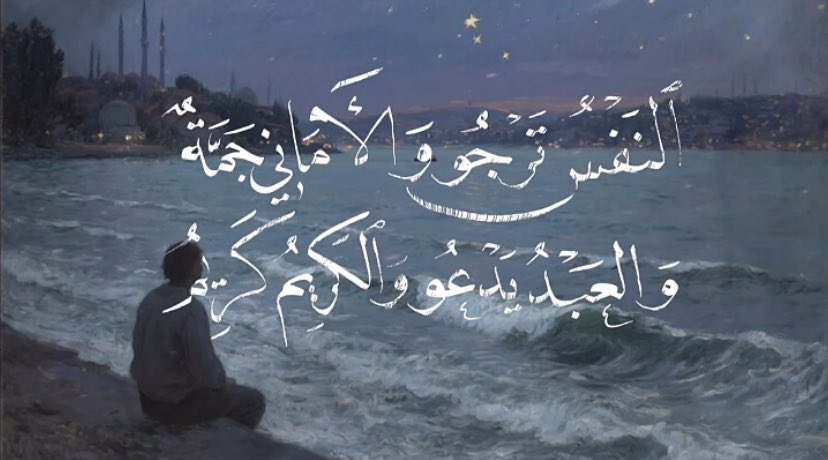 ٱلنَفْسُ تَرْجُو وَالأَمَانِي جَمَّةٌ
وَالعَبْدُ يَدْعُو وَالكَرِيمُ كَرِيمُ